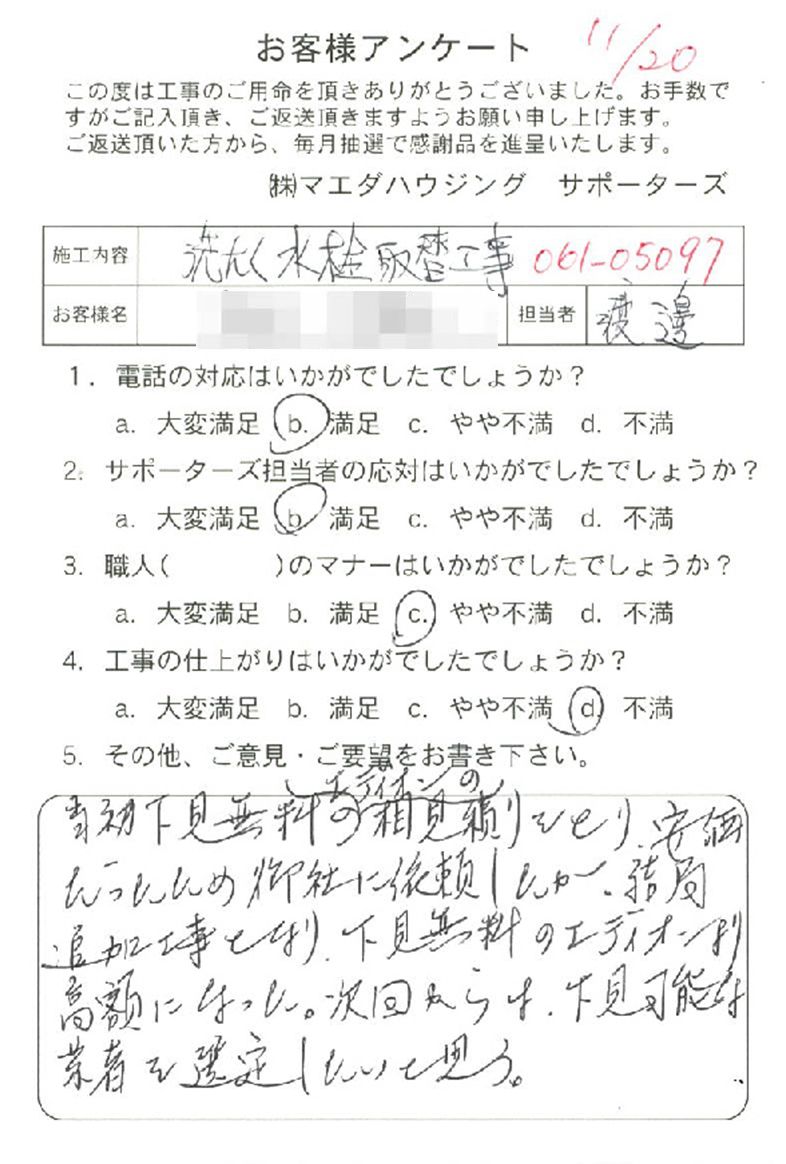 お客様アンケート 11/20
この度は工事のご用命を頂きありがとうございました。お手数で
すがご記入頂き、ご返送頂きますようお願い申し上げます。
ご返送頂いた方から、毎月抽選で感謝品を進呈いたします。
㈱マエダハウジング サポーターズ
施工内容 洗たく水栓取替工事 061-05097
お客様名 担当者 渡邊
1. 電話の対応はいかがでしたでしょうか？
a. 大変満足 b. 満足 c. やや不満 d. 不満
2. サポーターズ担当者の応対はいかがでしたでしょうか？
a. 大変満足 b. 満足 c. やや不満 d. 不満
3. 職人( )のマナーはいかがでしたでしょうか？
a. 大変満足 b. 満足 c. やや不満 d. 不満
4. 工事の仕上がりはいかがでしたでしょうか？
a. 大変満足 b. 満足 c. やや不満 d. 不満
5. その他、ご意見・ご要望をお書き下さい。
エディオンの
当初下見無料の相見積りをとり、安価
だったため御社に依頼したが、結局
追加工事となり、下見無料のエディオンより
高額になった。次回からは、下見可能な
業者を選定したいと思う。